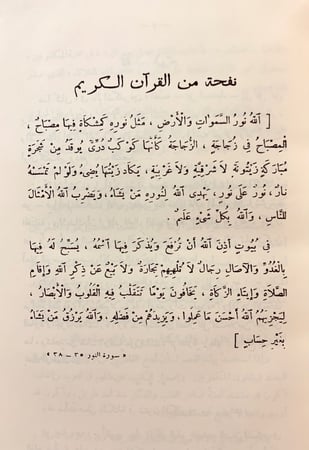 نفحة من القرآن الكريم
[ اَللهُ نُورُ السَّمَوَاتِ وَالْأَرْضِ ، مَثَلُ نُورِهِ كَمِشْكَاةٍ فِيهَا مِصْبَاحٌ ،
اَلْمِصْبَاحُ فِي زُجَاجَةٍ ، الزُّجَاجَةُ كَأَنَّهَا كَوْكَبٌ دُرِّيٌّ يُوقَدُ مِنْ شَجَرَةٍ
مُبَارَكَةٍ زَيْتُونَةٍ لَا شَرْقِيَّةٍ وَلَا غَرْبِيَّةٍ ، يَكَادُ زَيْتُهَا يُضِيءُ وَلَوْ لَمْ تَمْسَسْهُ
نَارٌ ، نُورٌ عَلَى نُورٍ ، يَهْدِي اللهُ لِنُورِهِ مَنْ يَشَاءُ ، وَيَضْرِبُ اللهُ الْأَمْثَالَ
لِلنَّاسِ ، وَاللهُ بِكُلِّ شَيْءٍ عَلِيمٌ .
فِي بُيُوتٍ أَذِنَ اللهُ أَنْ تُرْفَعَ وَيُذْكَرَ فِيهَا اسْمُهُ ، يُسَبِّحُ لَهُ فِيهَا
بِالْغُدُوِّ وَالْآصَالِ رِجَالٌ لَا تُلْهِيهِمْ تِجَارَةٌ وَلَا بَيْعٌ عَنْ ذِكْرِ اللهِ وَإِقَامِ
الصَّلَاةِ وَإِيتَاءِ الزَّكَاةِ ، يَخَافُونَ يَوْمًا تَتَقَلَّبُ فِيهِ الْقُلُوبُ وَالْأَبْصَارُ ،
لِيَجْزِيَهُمُ اللهُ أَحْسَنَ مَا عَمِلُوا ، وَيَزِيدَهُمْ مِنْ فَضْلِهِ ، وَاللهُ يَرْزُقُ مَنْ يَشَاءُ
بِغَيْرِ حِسَابٍ ]
« سورة النور ٣٥ – ٣٨ »